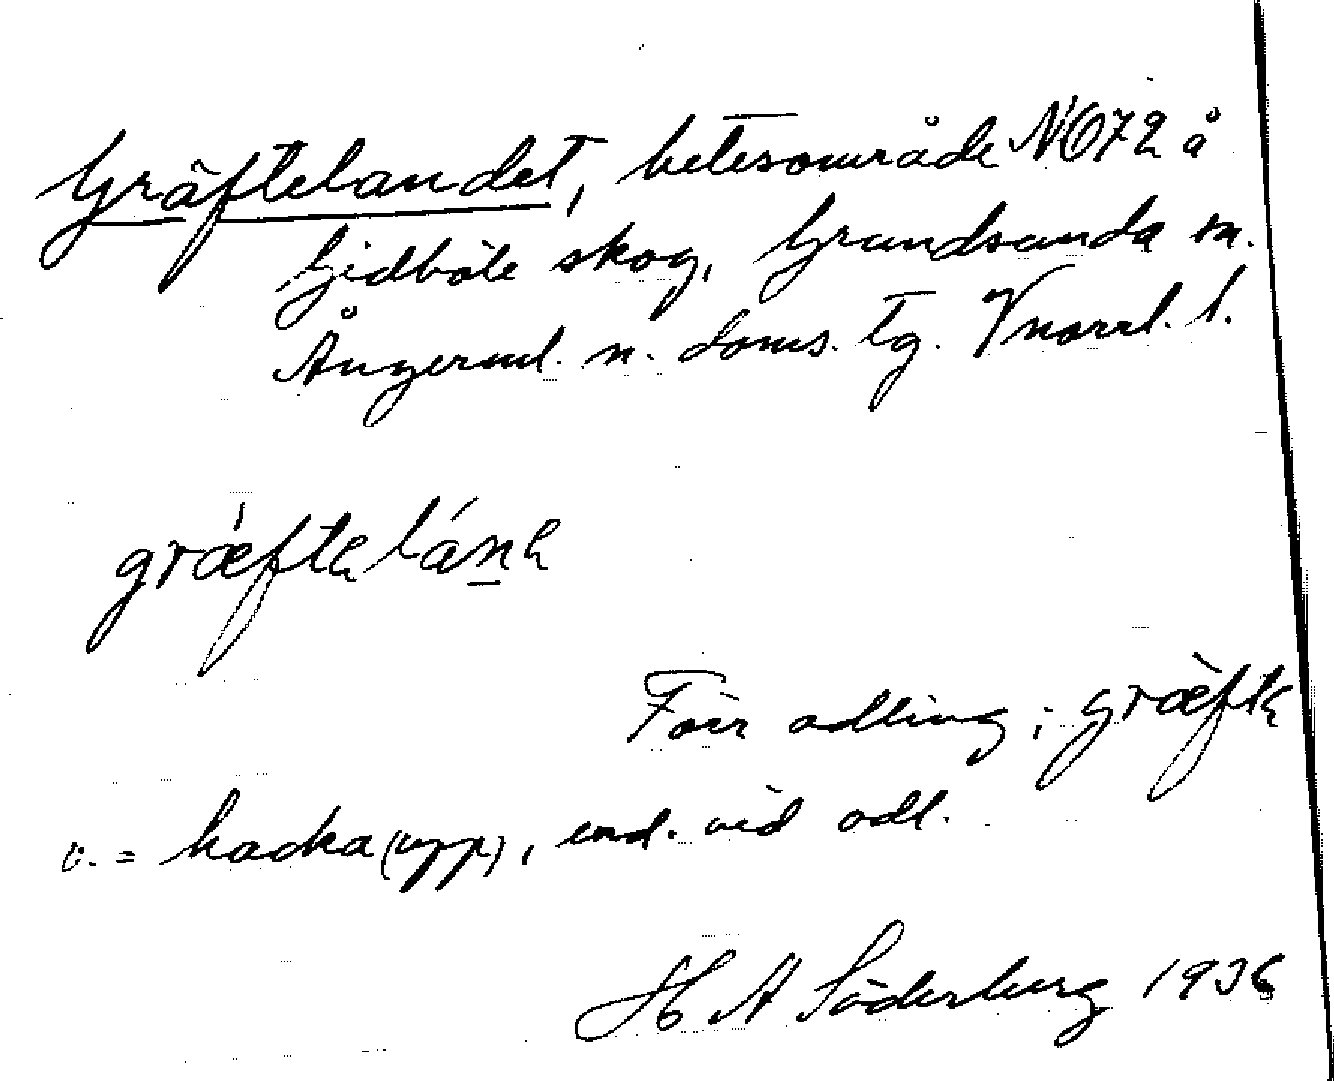 Gräftelandet, betesområde NO72 å
Gidböle skog, Grundsunda sn.
Ångerml. n. doms. tg. Vnorrl. l.
græ̀ftəláṉə
Förr odling; græ̀ftə
v. = hacka (upp), end. vid odl.
H A Söderberg 1936